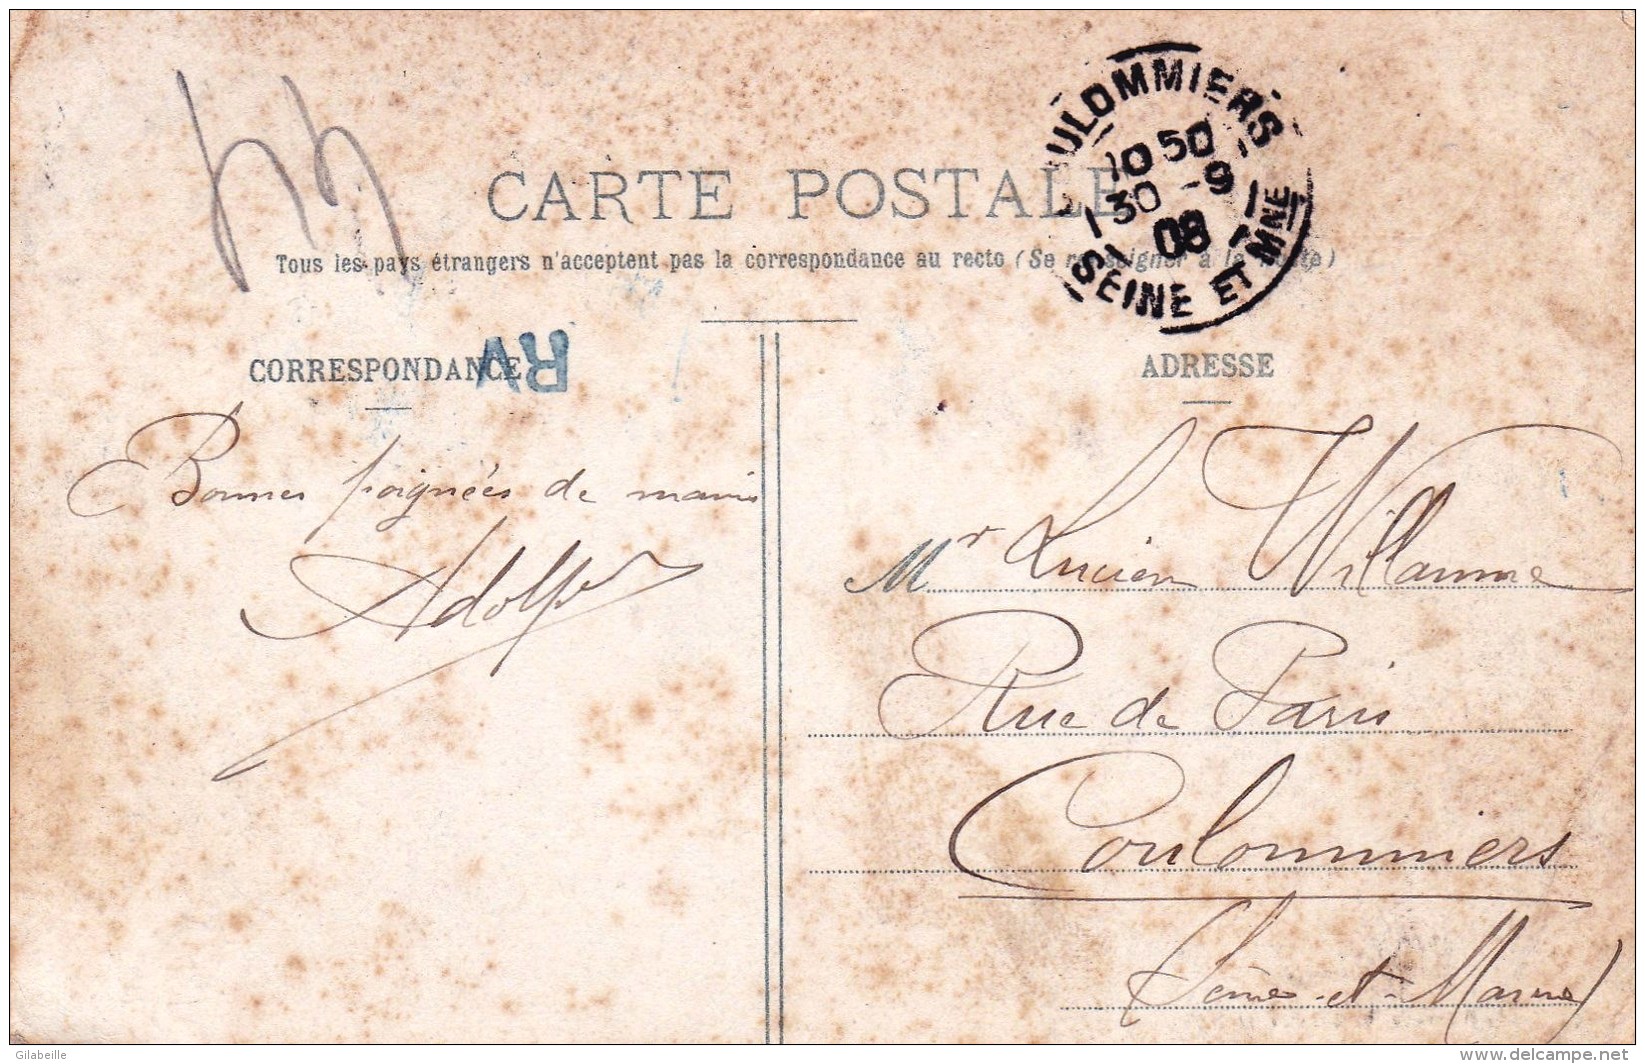 CARTE POSTALE
Tous les pays étrangers n'acceptent pas la correspondance au recto (Se renseigner à la Poste)
ULOMMIERS
10 50
30 -9
08
SEINE ET MNE
CORRESPONDANCE
RV
ADRESSE
Bonnes poignées de mains
Adolphe
Mr Lucien Willaume
Rue de Paris
Coulommiers
(Seine-et-Marne)
Gilabeille
delcampe.net